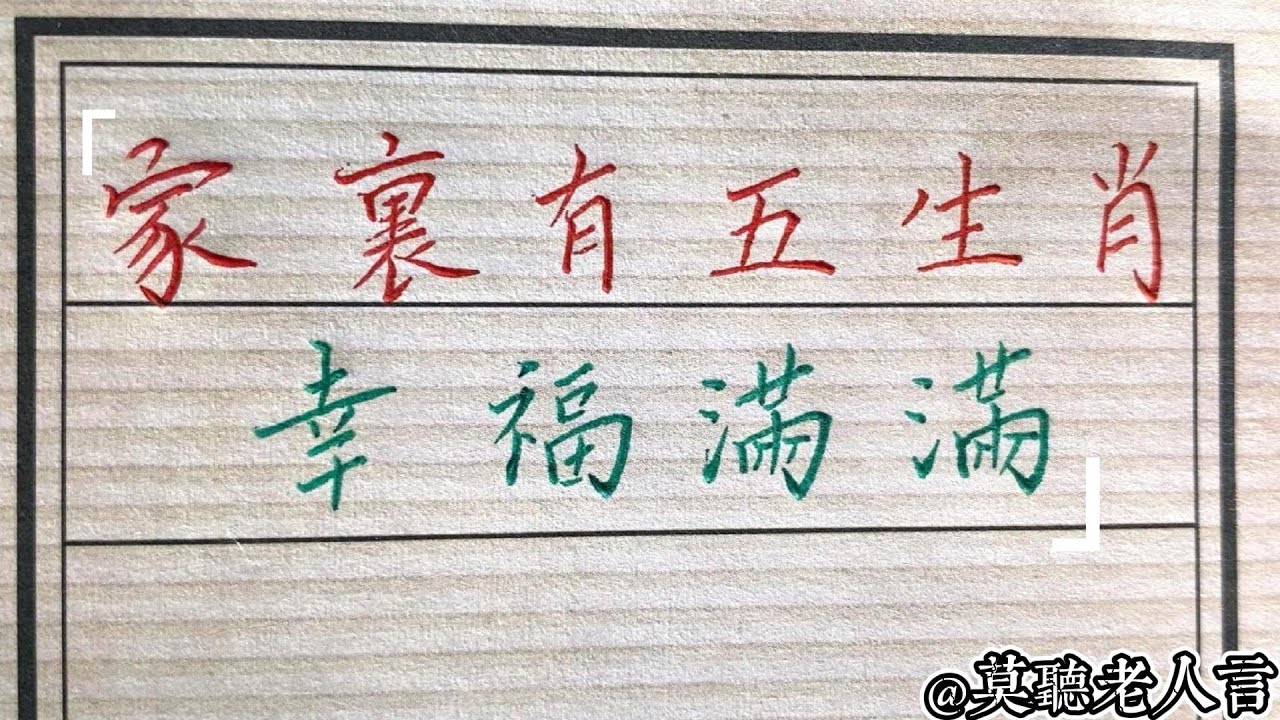 「家裏有五生肖
幸福滿滿」
@莫聽老人言